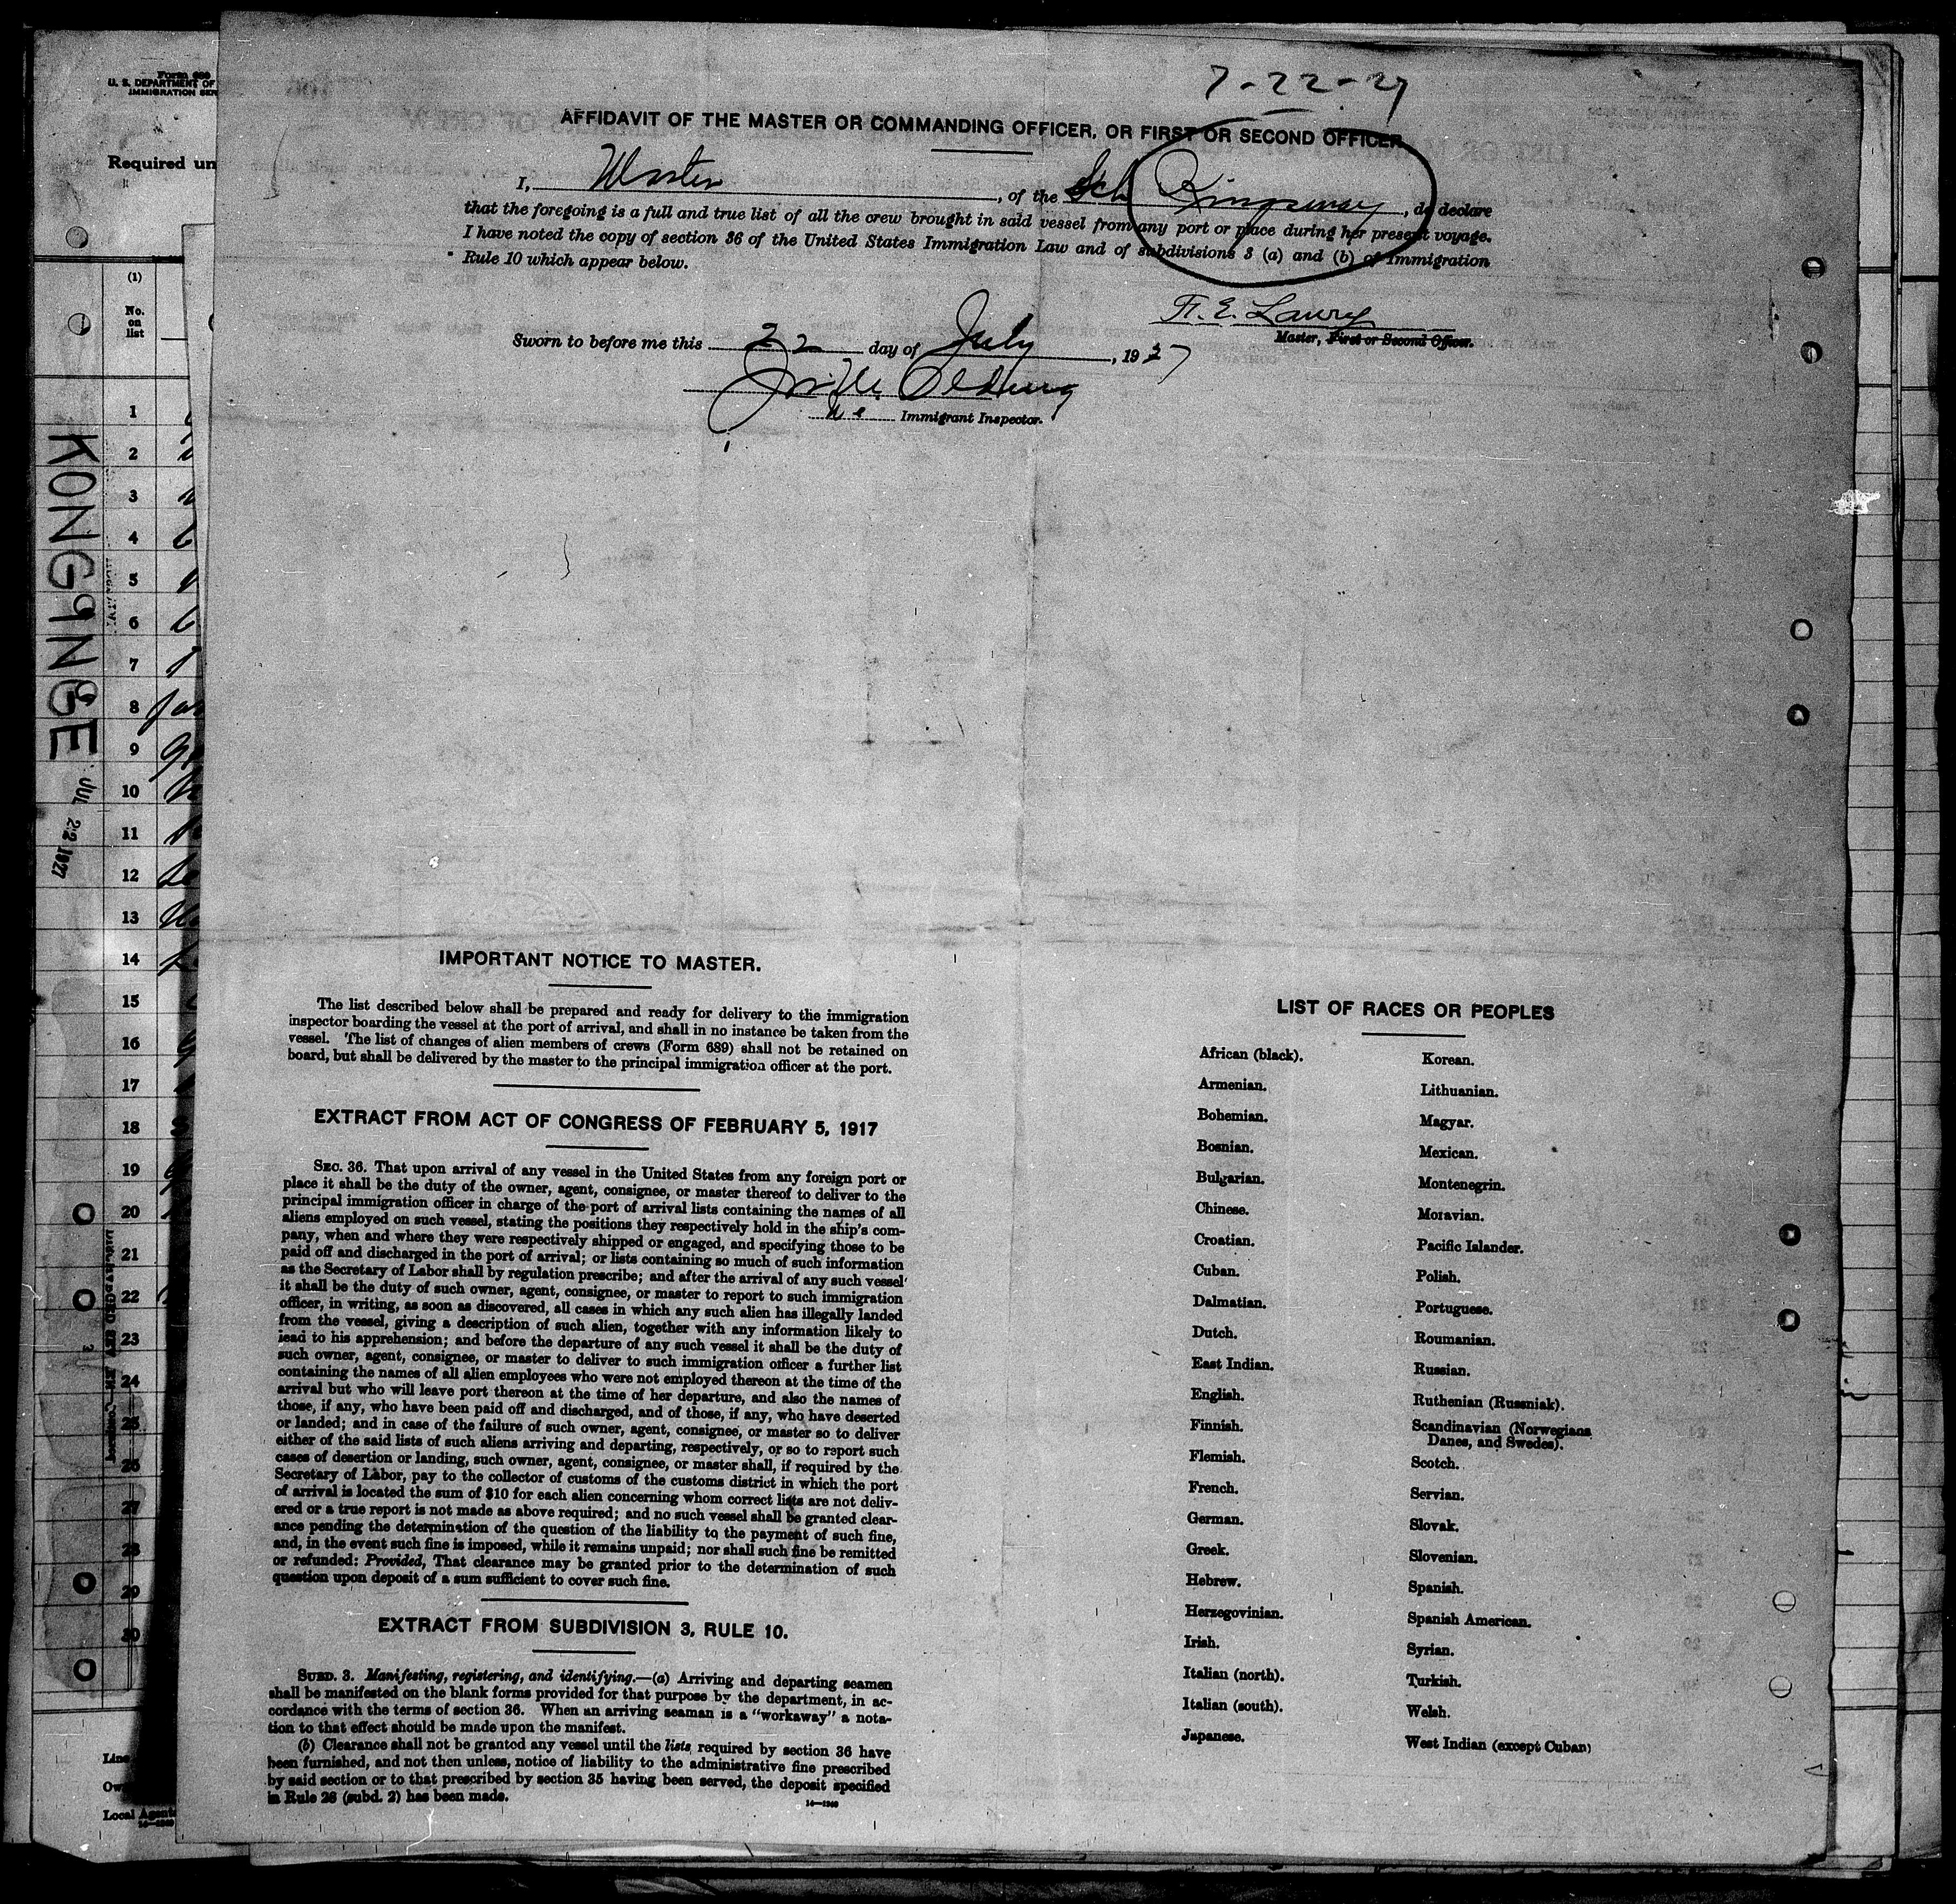 7-22-27
AFFIDAVIT OF THE MASTER OR COMMANDING OFFICER, OR FIRST OR SECOND OFFICER
I, Master, of the Sch Kingsway, do declare
that the foregoing is a full and true list of all the crew brought in said vessel from any port or place during her present voyage.
I have noted the copy of section 36 of the United States Immigration Law and of subdivisions 3 (a) and (b) of Immigration
Rule 10 which appear below.
F. E. Lawry
Master, First or Second Officer.
Sworn to before me this 22 day of July, 1927
Immigrant Inspector.
IMPORTANT NOTICE TO MASTER.
The list described below shall be prepared and ready for delivery to the immigration
inspector boarding the vessel at the port of arrival, and shall in no instance be taken from the
vessel. The list of changes of alien members of crews (Form 689) shall not be retained on
board, but shall be delivered by the master to the principal immigration officer at the port.
EXTRACT FROM ACT OF CONGRESS OF FEBRUARY 5, 1917
SEC. 36. That upon arrival of any vessel in the United States from any foreign port or
place it shall be the duty of the owner, agent, consignee, or master thereof to deliver to the
principal immigration officer in charge of the port of arrival lists containing the names of all
aliens employed on such vessel, stating the positions they respectively hold in the ship's com-
pany, when and where they were respectively shipped or engaged, and specifying those to be
paid off and discharged in the port of arrival; or lists containing so much of such information
as the Secretary of Labor shall by regulation prescribe; and after the arrival of any such vessel
it shall be the duty of such owner, agent, consignee, or master to report to such immigration
officer, in writing, as soon as discovered, all cases in which any such alien has illegally landed
from the vessel, giving a description of such alien, together with any information likely to
lead to his apprehension; and before the departure of any such vessel it shall be the duty of
such owner, agent, consignee, or master to deliver to such immigration officer a further list
containing the names of all alien employees who were not employed thereon at the time of the
arrival but who will leave port thereon at the time of her departure, and also the names of
those, if any, who have been paid off and discharged, and of those, if any, who have deserted
or landed; and in case of the failure of such owner, agent, consignee, or master so to deliver
either of the said lists of such aliens arriving and departing, respectively, or so to report such
cases of desertion or landing, such owner, agent, consignee, or master shall, if required by the
Secretary of Labor, pay to the collector of customs of the customs district in which the port
of arrival is located the sum of $10 for each alien concerning whom correct lists are not deliv-
ered or a true report is not made as above required; and no such vessel shall be granted clear-
ance pending the determination of the question of the liability to the payment of such fine,
and, in the event such fine is imposed, while it remains unpaid; nor shall such fine be remitted
or refunded: Provided, That clearance may be granted prior to the determination of such
question upon deposit of a sum sufficient to cover such fine.
EXTRACT FROM SUBDIVISION 3, RULE 10.
SUBD. 3. Manifesting, registering, and identifying.—(a) Arriving and departing seamen
shall be manifested on the blank forms provided for that purpose by the department, in ac-
cordance with the terms of section 36. When an arriving seaman is a "workaway" a nota-
tion to that effect should be made upon the manifest.
(b) Clearance shall not be granted any vessel until the lists required by section 36 have
been furnished, and not then unless, notice of liability to the administrative fine prescribed
by said section or to that prescribed by section 35 having been served, the deposit specified
in Rule 28 (subd. 2) has been made.
14—1240
LIST OF RACES OR PEOPLES
African (black).
Armenian.
Bohemian.
Bosnian.
Bulgarian.
Chinese.
Croatian.
Cuban.
Dalmatian.
Dutch.
East Indian.
English.
Finnish.
Flemish.
French.
German.
Greek.
Hebrew.
Herzegovinian.
Irish.
Italian (north).
Italian (south).
Japanese.
Korean.
Lithuanian.
Magyar.
Mexican.
Montenegrin.
Moravian.
Pacific Islander.
Polish.
Portuguese.
Roumanian.
Russian.
Ruthenian (Russniak).
Scandinavian (Norwegians
Danes, and Swedes).
Scotch.
Servian.
Slovak.
Slovenian.
Spanish.
Spanish American.
Syrian.
Turkish.
Welsh.
West Indian (except Cuban)
U. S. DEPARTMENT OF
IMMIGRATION SER
Required un
(1)
No.
on
list
1
2
3
4
5
6
7
8
9
10
11
12
13
14
15
16
17
18
19
20
21
22
23
24
25
26
27
28
29
30
JUL 22 1927
Line
Ow
Local Agent